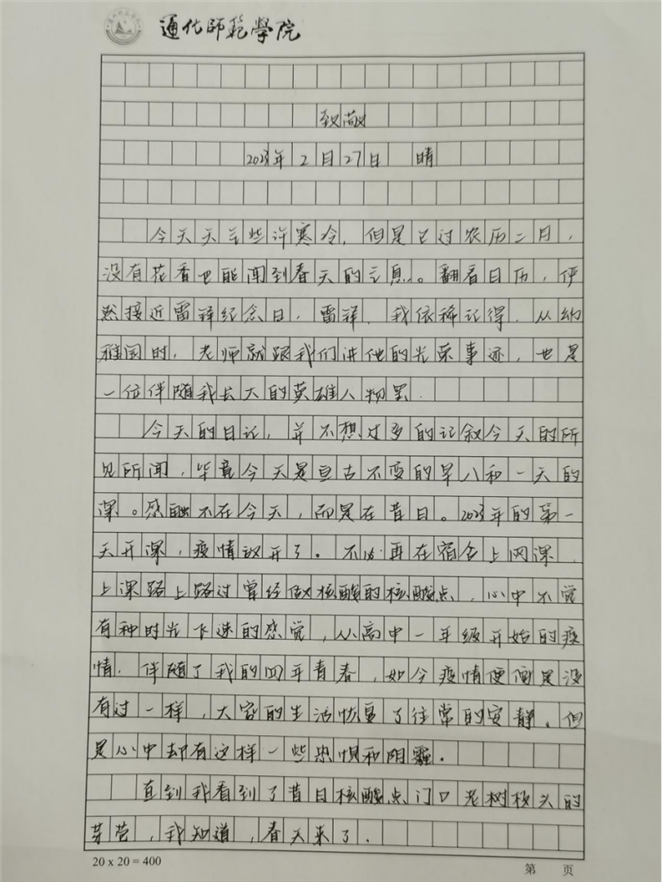 通化师范學院
致敬
2023年2月27日 晴
今天天气些许寒冷，但是已过农历二月，
没有花香也能闻到春天的气息。翻看日历，便
然接近雷锋纪念日，雷锋，我依稀记得，从幼
稚园时，老师就跟我们讲他的光荣事迹，也是
一位伴随我长大的英雄人物罢
今天的日记，并不想过多的记叙今天的所
见所闻，毕竟今天是亘古不变的早八和一天的
课。感触不在今天，而是在昔日。2023年的第一
天开课，疫情放开了。不必再在宿舍上网课，
上课路上路过曾经做核酸的核酸点，心中不觉
有种时光飞逝的感觉，从高中一年级开始的疫
情，伴随了我的四年青春，如今疫情便像是没
有过一样，大家的生活恢复了往常的安静。但
是心中却有这样一些恐惧和阴霾。
直到我看到了昔日核酸点门口老树枝头的
芽苞，我知道，春天来了．
20 x 20 = 400
第 页